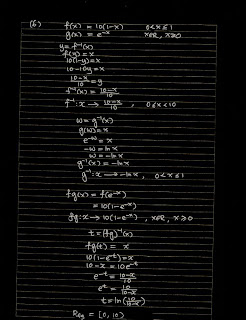 (6) f(x) = 10(1-x) 0<x≤1
g(x) = e^-x x∈R, x≥0
y = f^-1(x)
f(y) = x
10(1-y) = x
10-10y = x
10-x/10 = y
f^-1(x) = 10-x/10
f^-1: x → 10-x/10, 0≤x<10
w = g^-1(x)
g(w) = x
e^-w = x
-w = ln x
w = -ln x
g^-1(x) = -ln x
g^-1: x → -ln x, 0<x≤1
fg(x) = f(e^-x)
= 10(1-e^-x)
fg: x → 10(1-e^-x), x∈R, x≥0
t = (fg)^-1(x)
fg(t) = x
10(1-e^-t) = x
10-x = 10e^-t
e^-t = 10-x/10
e^t = 10/10-x
t = ln(10/10-x)
R = [0, 10)